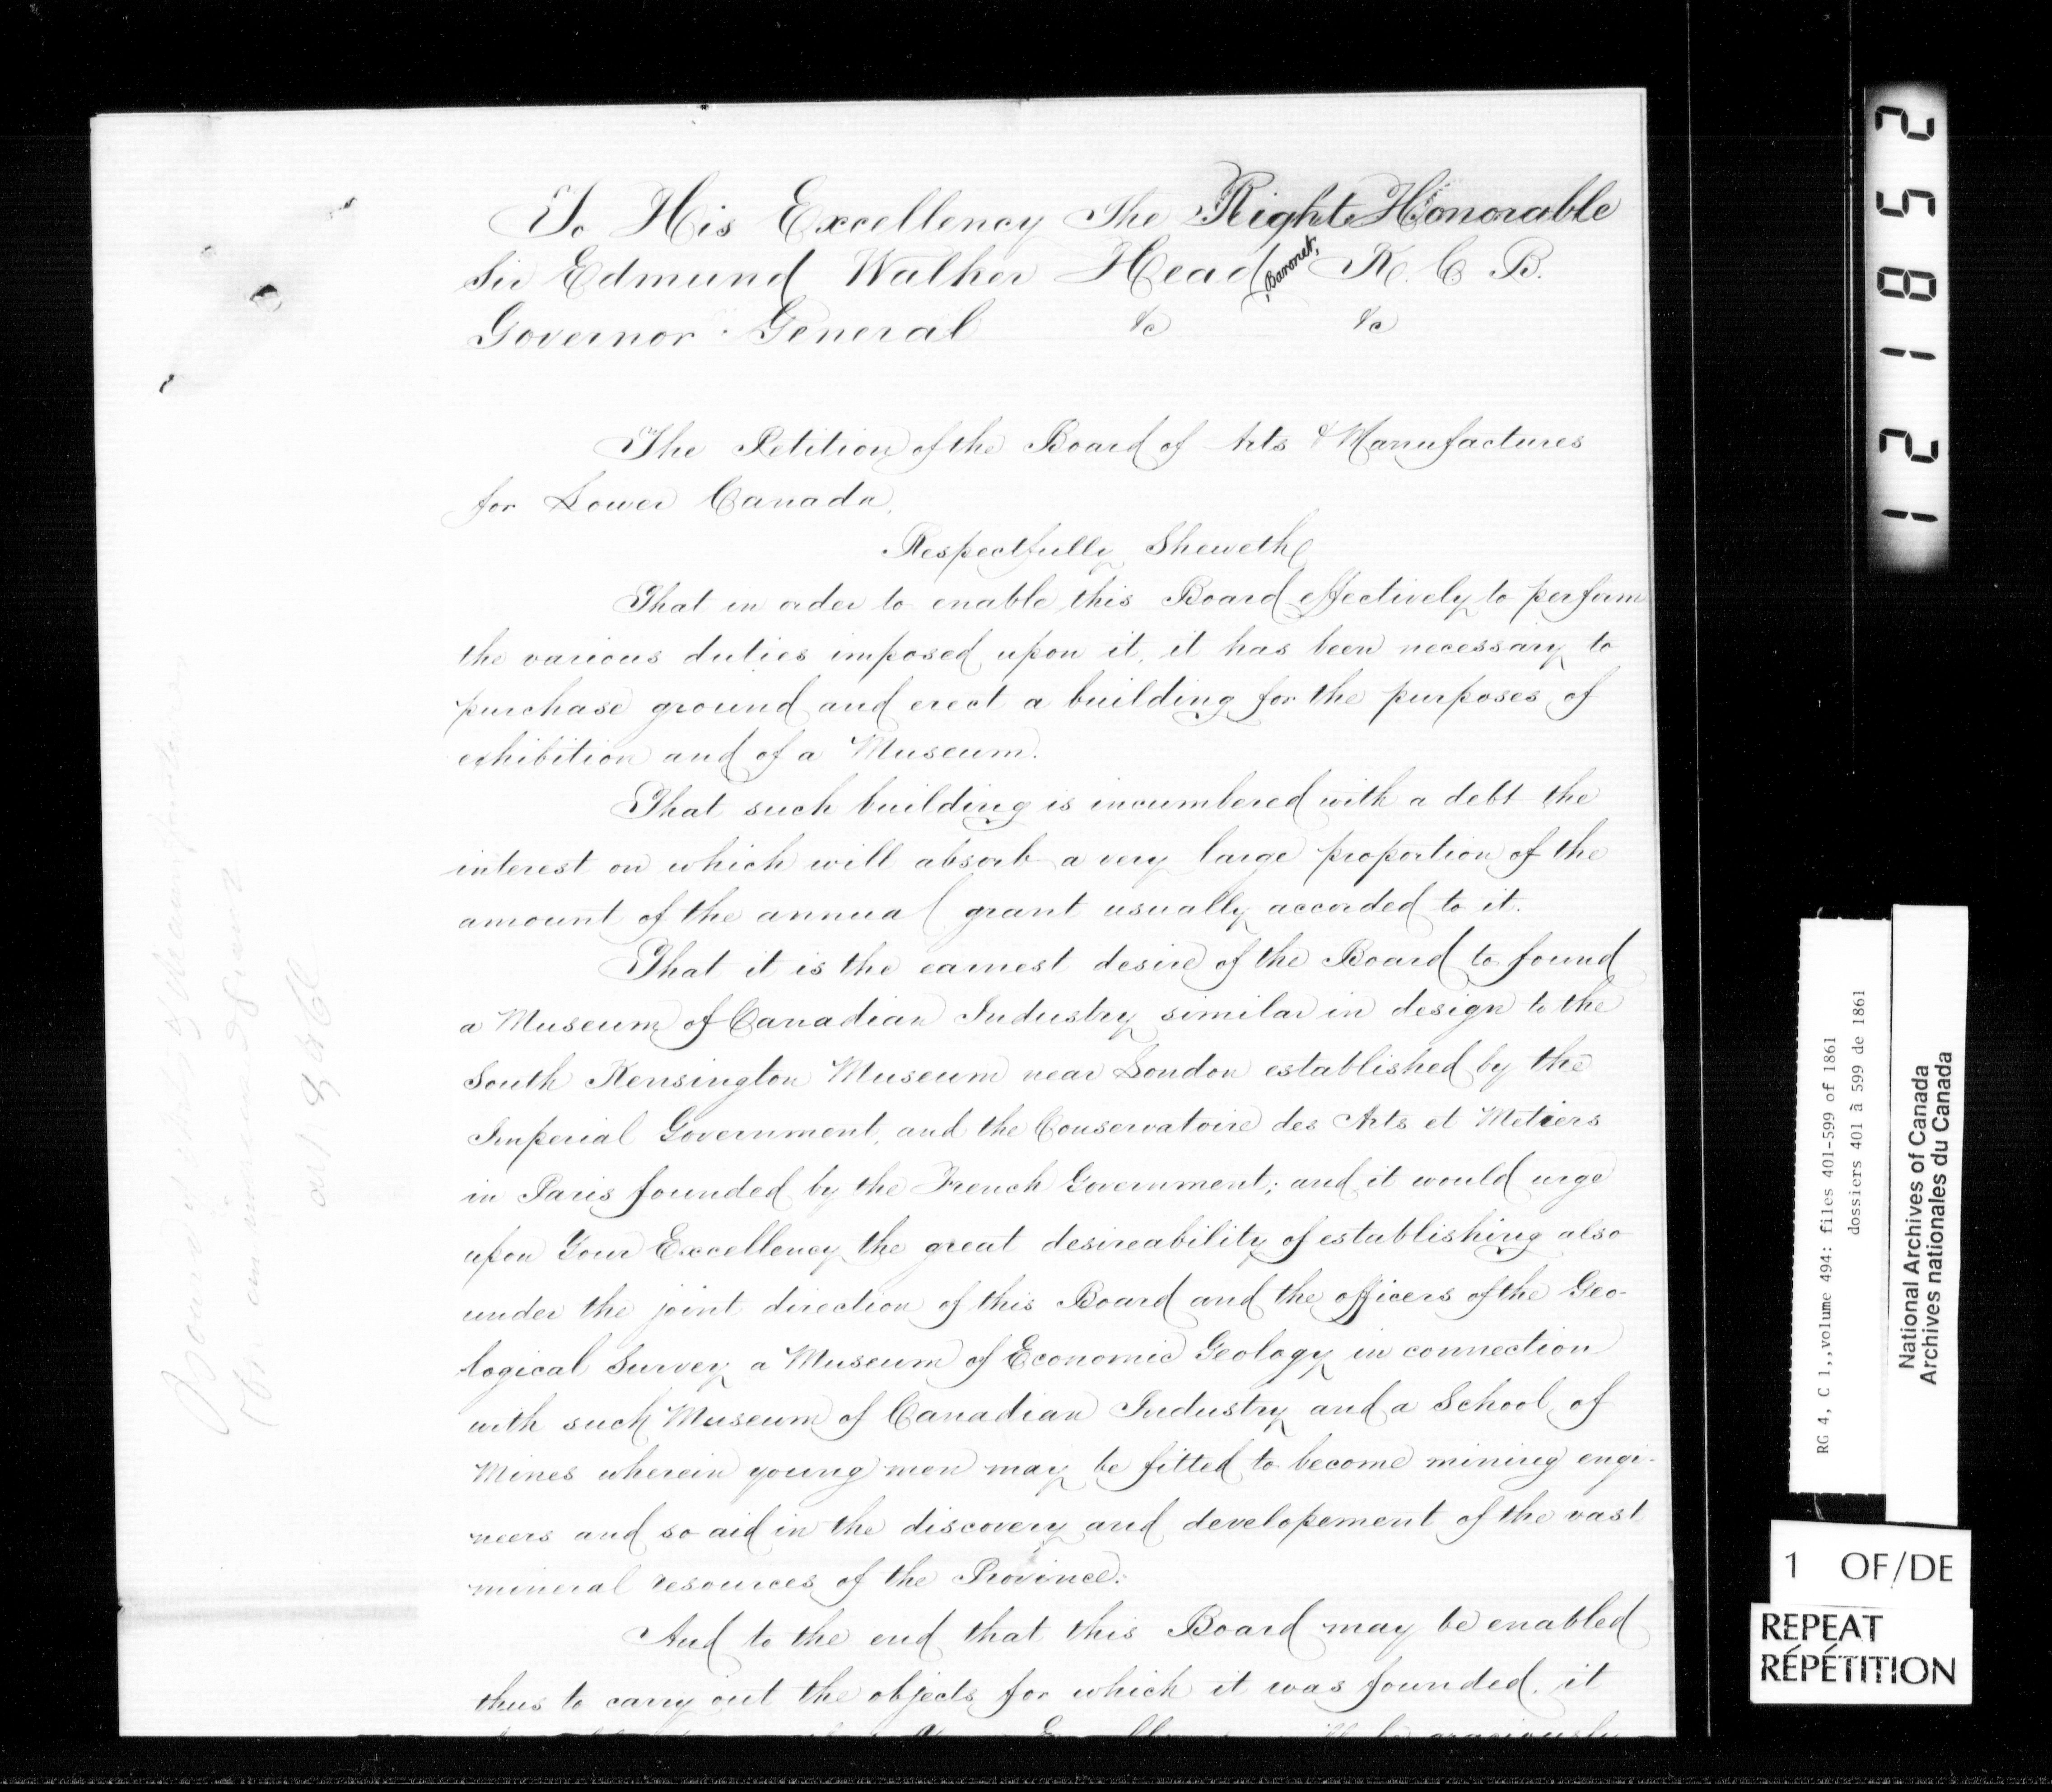 To His Excellency The Right Honorable
Sir Edmund Walker Head, Baronet, K. C. B.
Governor General &c &c
The Petition of the Board of Arts & Manufactures
for Lower Canada,
Respectfully Sheweth
That in order to enable this Board effectively to perform
the various duties imposed upon it, it has been necessary to
purchase ground and erect a building for the purposes of
exhibition and of a Museum.
That such building is incumbered with a debt the
interest on which will absorb a very large proportion of the
amount of the annual grant usually accorded to it.
That it is the earnest desire of the Board to found
a Museum of Canadian Industry similar in design to the
South Kensington Museum near London established by the
Imperial Government, and the Conservatoire des Arts et Metiers
in Paris founded by the French Government; and it would urge
upon Your Excellency the great desireability of establishing also
under the joint direction of this Board and the officers of the Geo-
logical Survey a Museum of Economic Geology in connection
with such Museum of Canadian Industry and a School of
Mines wherein young men may be fitted to become mining engi-
neers and so aid in the discovery and developement of the vast
mineral resources of the Province.
And to the end that this Board may be enabled
thus to carry out the objects for which it was founded, it
graciously
Board of Arts &
121852
RG 4, C 1,,volume 494: files 401-599 of 1861
dossiers 401 â 599 de 1861
National Archives of Canada
Archives nationales du Canada
1 OF/DE
REPEAT
RÉPÉTITION